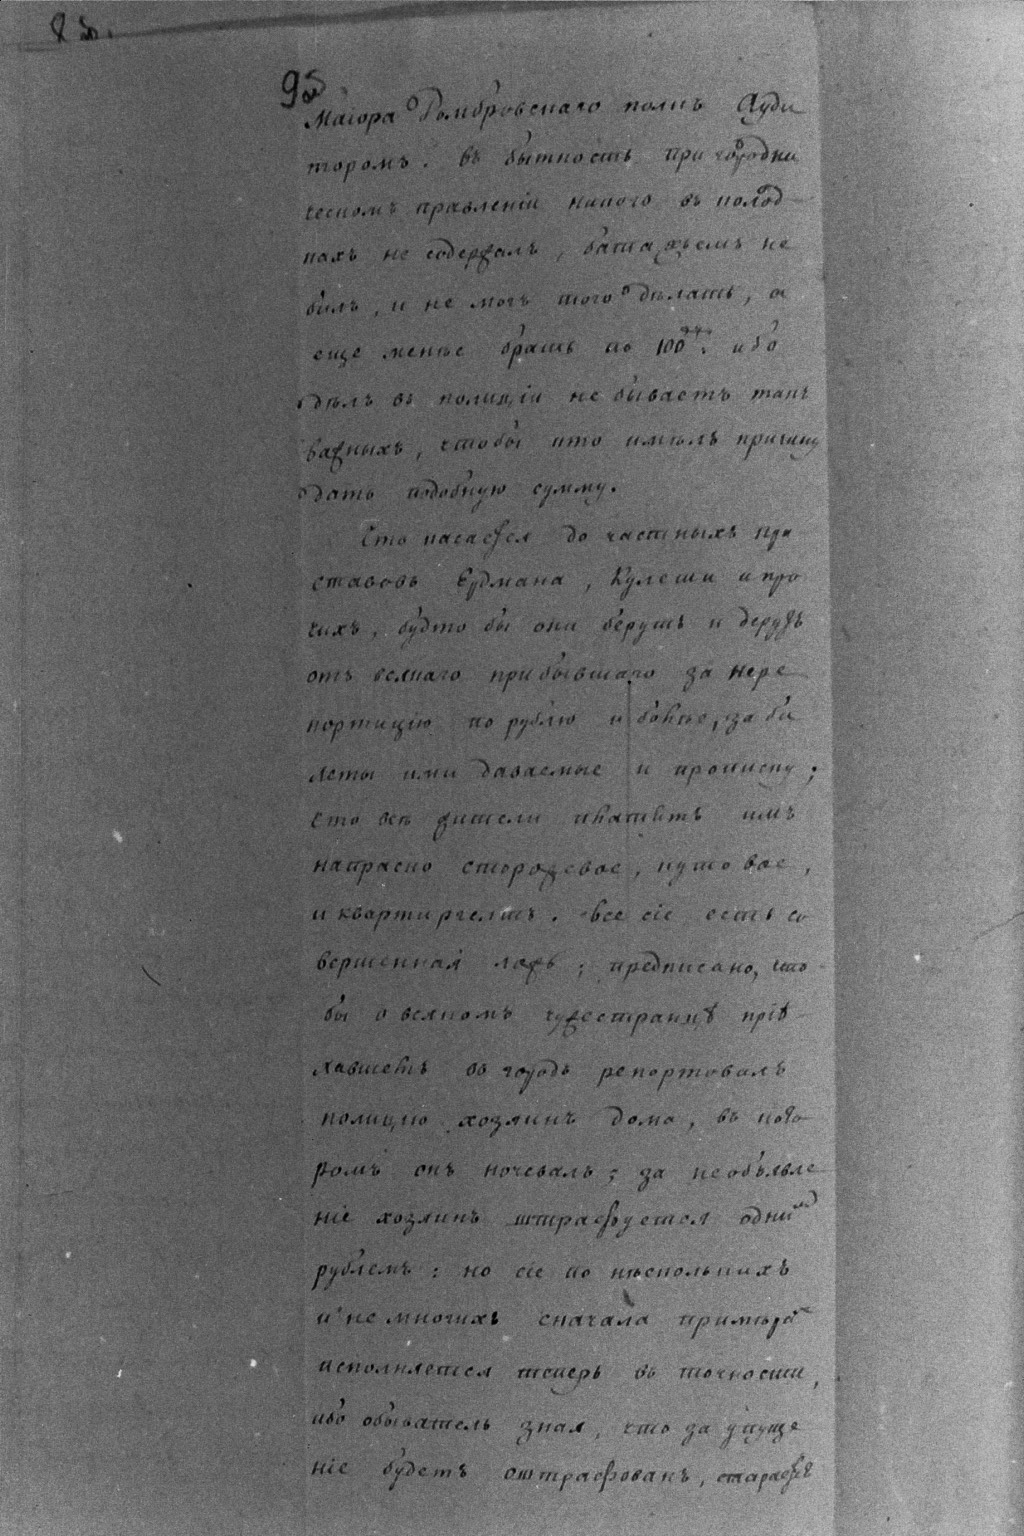 95
Маіора Домбровскаго полкъ Ауди
торомъ. въ бытность при городни
ческомъ правленіи никого въ колод-
кахъ не содержалъ, батажьемъ не
билъ, и не могъ того дѣлать, а
еще менѣе брать по 100 ибо
дѣлъ въ полиціи не бываетъ такъ
важныхъ, чтобы кто имѣлъ причину
дать подобную сумму.
Что касаетсл до частныхъ при
ставовъ Ердмана, Кулеши и про
чихъ, будто бы они берутъ и дерутъ
отъ всякаго прибывшаго за нере
портицію по рублю и болѣе, за би
леты ими даваемые и прописку;
что всѣ жители платятъ имъ
напрасно сторожевое, путовое,
и квартиргелтъ. все сіе есть со
вершенная ложь; предписано, что
бы о всякомъ чужестранцѣ пріѣ-
хавшемъ въ городъ репортовалъ
полицію хозяинъ дома, въ кото
ромъ онъ ночевалъ; за необъявле
ніе хозяинъ штрафуется одни
рублемъ: но сіе по нѣсколькихъ
и не многихъ сначала примѣра
исполняется теперь въ точности,
ибо обыватель зная, что за упуще
ніе будетъ оштрафованъ, старается